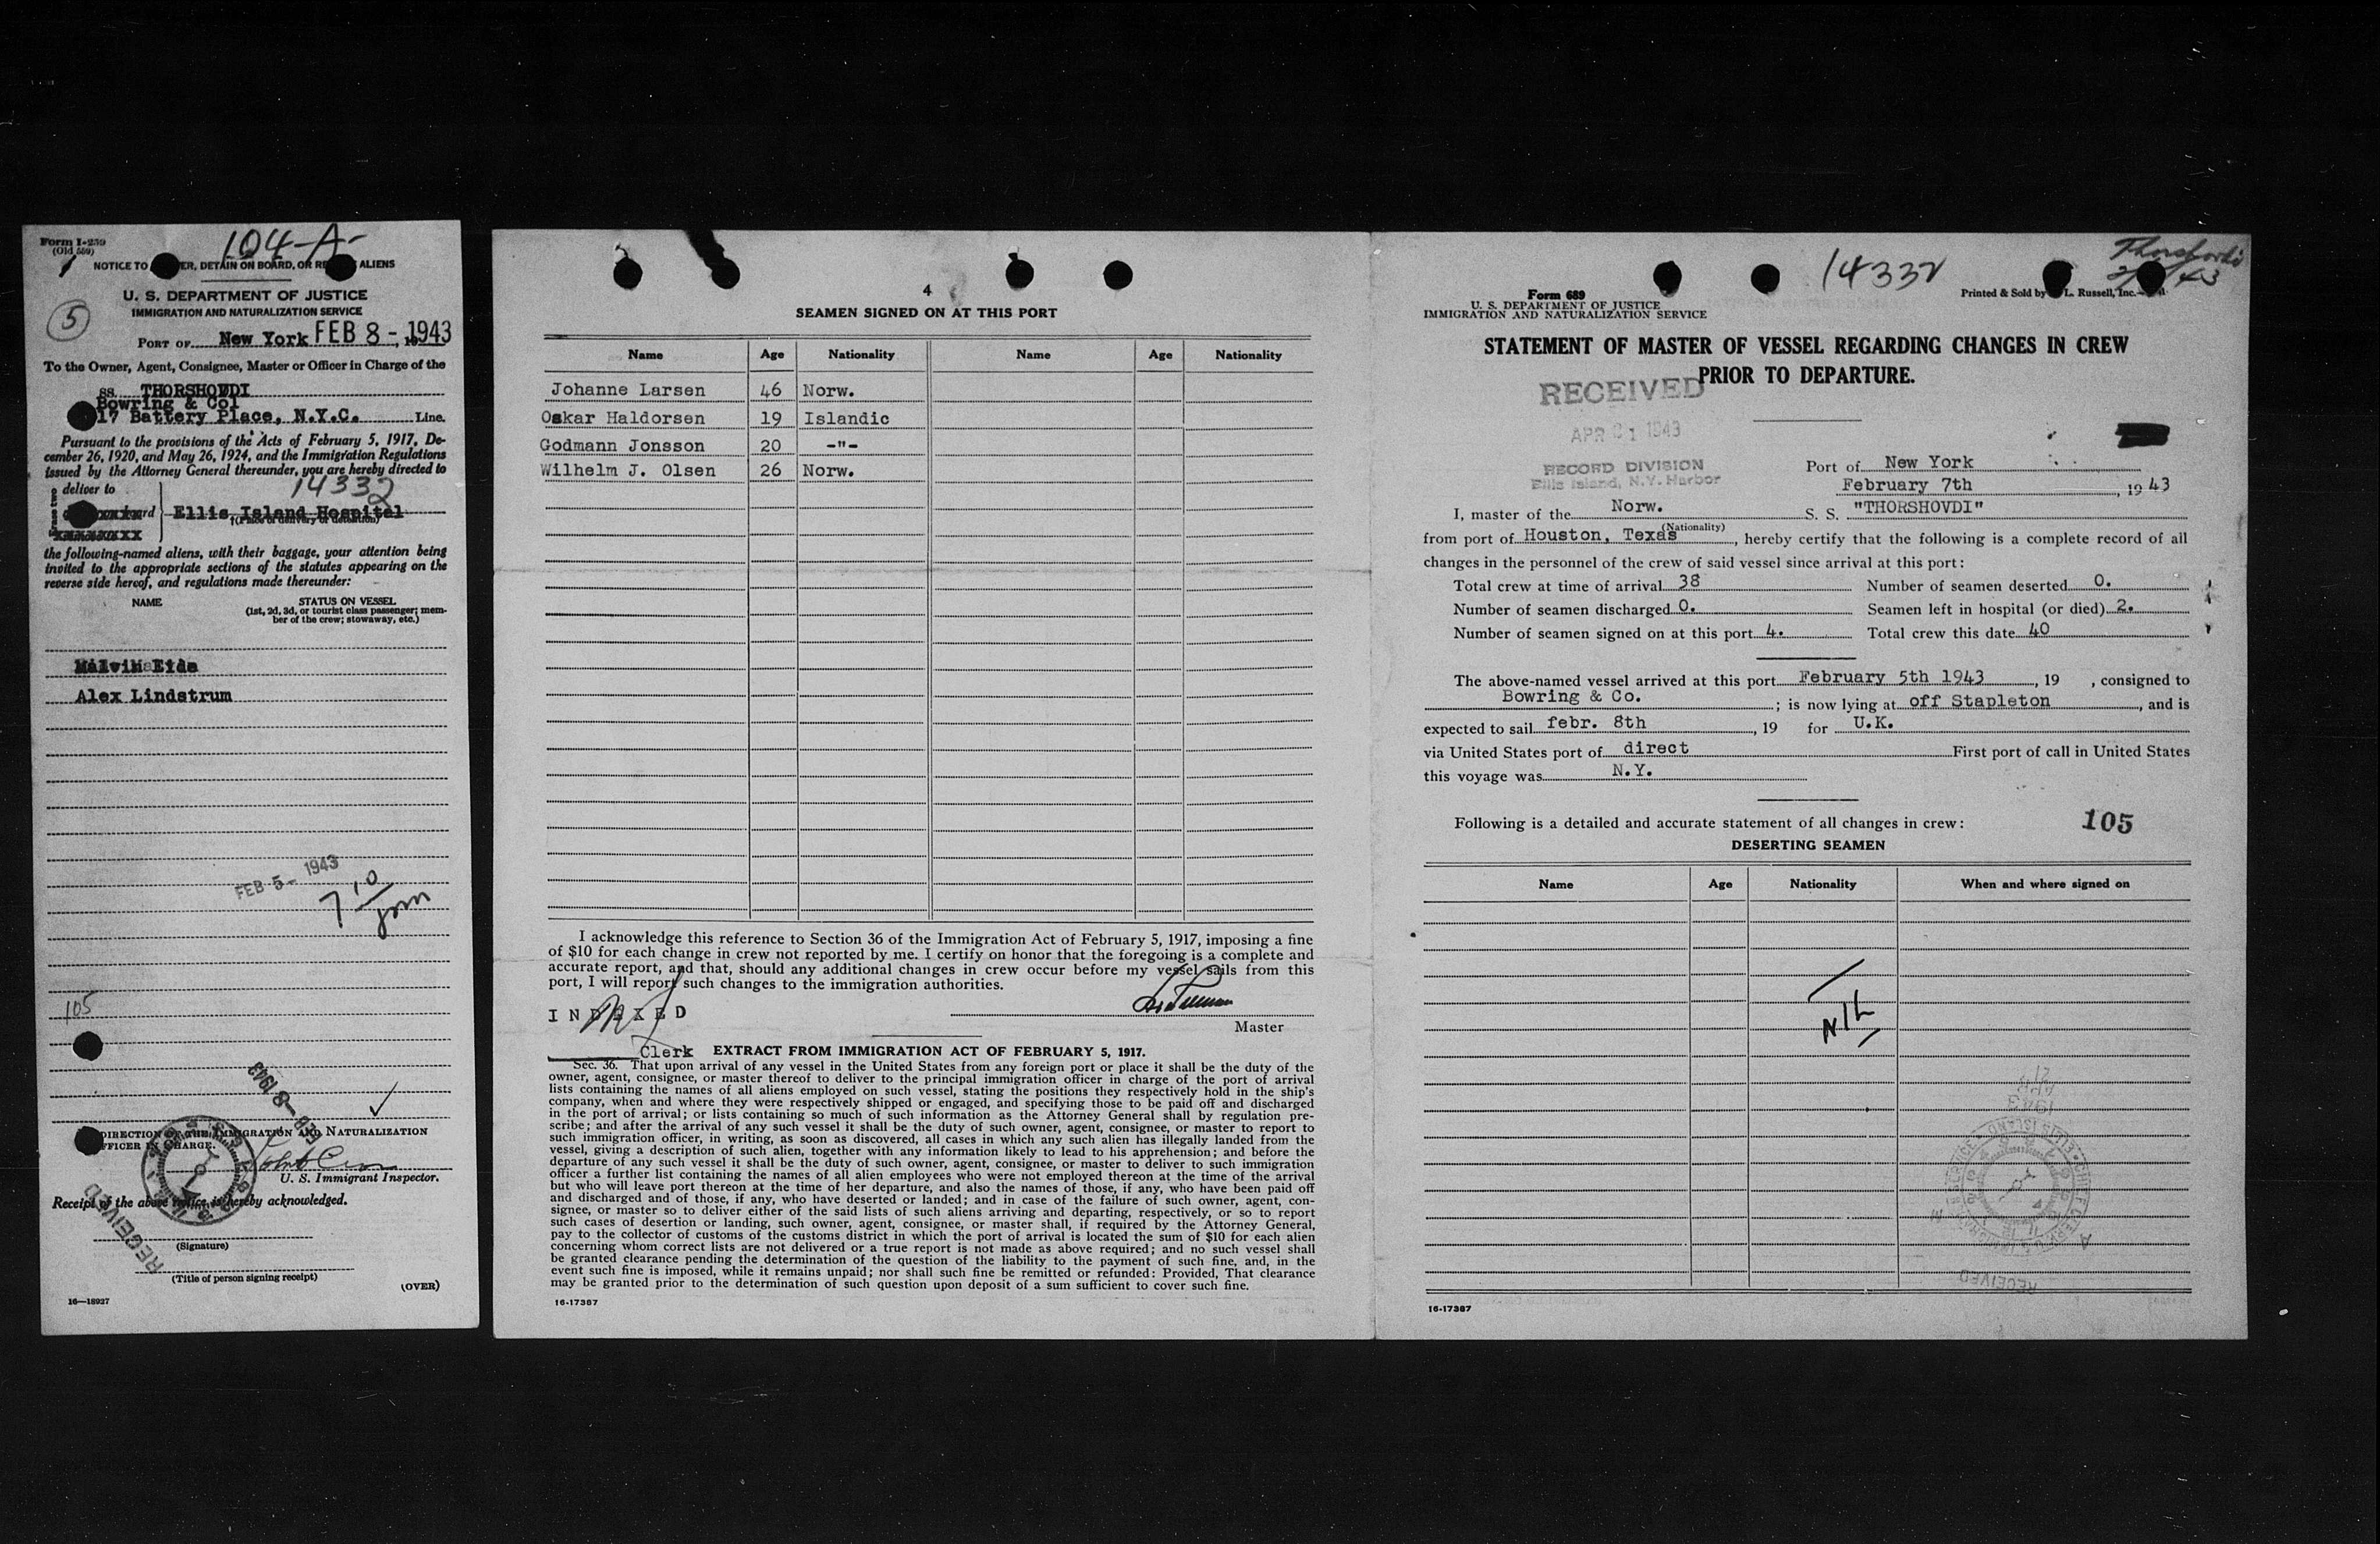 Form I-259
(Old 559)
104-A-
NOTICE TO DETAIN ON BOARD, OR ALIENS
U. S. DEPARTMENT OF JUSTICE
IMMIGRATION AND NATURALIZATION SERVICE
5
PORT OF New York FEB 8 - 1943
To the Owner, Agent, Consignee, Master or Officer in Charge of the
SS. THORSHOVDI
Bowring & Co.
17 Battery Place, N.Y.C. Line.
Pursuant to the provisions of the Acts of February 5, 1917, De-
cember 26, 1920, and May 26, 1924, and the Immigration Regulations
issued by the Attorney General thereunder, you are hereby directed to
14332
deliver to
Ellis Island Hospital
(Place of delivery or detention)
the following-named aliens, with their baggage, your attention being
invited to the appropriate sections of the statutes appearing on the
reverse side hereof, and regulations made thereunder:
NAME STATUS ON VESSEL
(1st, 2d, 3d, or tourist class passenger; mem-
ber of the crew; stowaway, etc.)
Eide
Alex Lindstrum
FEB 5 - 1943
7 10 pm
105
FEB - 8 1943
DIRECTION OF THE IMMIGRATION AND NATURALIZATION
OFFICER IN CHARGE.
U. S. Immigrant Inspector.
Receipt of the above notice is hereby acknowledged.
RECEIVED
(Signature)
(Title of person signing receipt)
(OVER)
16—18927
4
SEAMEN SIGNED ON AT THIS PORT
Name Age Nationality Name Age Nationality
Johanne Larsen 46 Norw.
Oskar Haldorsen 19 Islandic
Godmann Jonsson 20 -"-
Wilhelm J. Olsen 26 Norw.
I acknowledge this reference to Section 36 of the Immigration Act of February 5, 1917, imposing a fine
of $10 for each change in crew not reported by me. I certify on honor that the foregoing is a complete and
accurate report, and that, should any additional changes in crew occur before my vessel sails from this
port, I will report such changes to the immigration authorities.
INDEXED
Master
Clerk EXTRACT FROM IMMIGRATION ACT OF FEBRUARY 5, 1917.
Sec. 36. That upon arrival of any vessel in the United States from any foreign port or place it shall be the duty of the
owner, agent, consignee, or master thereof to deliver to the principal immigration officer in charge of the port of arrival
lists containing the names of all aliens employed on such vessel, stating the positions they respectively hold in the ship's
company, when and where they were respectively shipped or engaged, and specifying those to be paid off and discharged
in the port of arrival; or lists containing so much of such information as the Attorney General shall by regulation pre-
scribe; and after the arrival of any such vessel it shall be the duty of such owner, agent, consignee, or master to report to
such immigration officer, in writing, as soon as discovered, all cases in which any such alien has illegally landed from the
vessel, giving a description of such alien, together with any information likely to lead to his apprehension; and before the
departure of any such vessel it shall be the duty of such owner, agent, consignee, or master to deliver to such immigration
officer a further list containing the names of all alien employees who were not employed thereon at the time of the arrival
but who will leave port thereon at the time of her departure, and also the names of those, if any, who have been paid off
and discharged and of those, if any, who have deserted or landed; and in case of the failure of such owner, agent, con-
signee, or master so to deliver either of the said lists of such aliens arriving and departing, respectively, or so to report
such cases of desertion or landing, such owner, agent, consignee, or master shall, if required by the Attorney General,
pay to the collector of customs of the customs district in which the port of arrival is located the sum of $10 for each alien
concerning whom correct lists are not delivered or a true report is not made as above required; and no such vessel shall
be granted clearance pending the determination of the question of the liability to the payment of such fine, and, in the
event such fine is imposed, while it remains unpaid; nor shall such fine be remitted or refunded: Provided, That clearance
may be granted prior to the determination of such question upon deposit of a sum sufficient to cover such fine.
16-17387
14332
Thorshovdi
Form 689
U. S. DEPARTMENT OF JUSTICE
IMMIGRATION AND NATURALIZATION SERVICE
Printed & Sold by L. Russell, Inc.
STATEMENT OF MASTER OF VESSEL REGARDING CHANGES IN CREW
PRIOR TO DEPARTURE.
RECEIVED
APR 21 1943
RECORD DIVISION
Ellis Island, N.Y. Harbor
Port of New York
February 7th, 1943
I, master of the Norw. S. S. "THORSHOVDI"
(Nationality)
from port of Houston, Texas, hereby certify that the following is a complete record of all
changes in the personnel of the crew of said vessel since arrival at this port:
Total crew at time of arrival 38 Number of seamen deserted 0.
Number of seamen discharged 0. Seamen left in hospital (or died) 2.
Number of seamen signed on at this port 4. Total crew this date 40
The above-named vessel arrived at this port February 5th 1943, 19 , consigned to
Bowring & Co. ; is now lying at off Stapleton, and is
expected to sail febr. 8th, 19 for U.K.
via United States port of direct First port of call in United States
this voyage was N.Y.
Following is a detailed and accurate statement of all changes in crew:
105
DESERTING SEAMEN
Name Age Nationality When and where signed on
NIL
1943
RECEIVED
16-17387